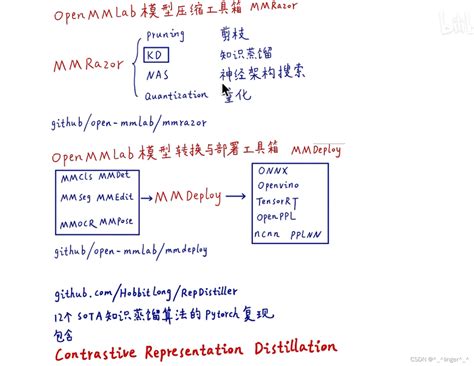 OpenMMLab 模型压缩工具箱 MMRazor
MMRazor
Pruning 剪枝
KD 知识蒸馏
NAS 神经架构搜索
Quantization 量化
github/open-mmlab/mmrazor
OpenMMLab 模型转换与部署工具箱 MMDeploy
MMCls MMDet
MMSeg MMEdit
MMOCR MMPose
MMDeploy
ONNX
Openvino
TensorRT
OpenPPL
ncnn PPLNN
github/open-mmlab/mmdeploy
github.com/HobbitLong/RepDistiller
12个SOTA知识蒸馏算法的Pytorch复现
包含
Contrastive Representation Distillation